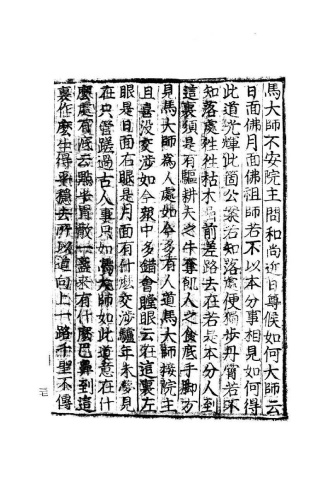 馬大師不安院主問和尚近日尊候如何大師云
日面佛月面佛祖師若不以本分事相見如何得
此道光輝此箇公案若知落處便獨步丹霄若不
知落處往往枯木岩前差路去在若是本分人到
這裏須是有驅耕夫之牛奪飢人之食底手脚方
見馬大師爲人處如今多有人道馬大師接院主
且喜没交渉如今衆中多錯會瞠眼云在這裏左
眼是日面右眼是月面有什麽交渉驢年未夢見
在只管蹉過古人事只如馬大師如此道意在什
麽處有底云點平胃散一盞來有什麽巴鼻到這
裏作麽生得平穩去所以道向上一路千聖不傳